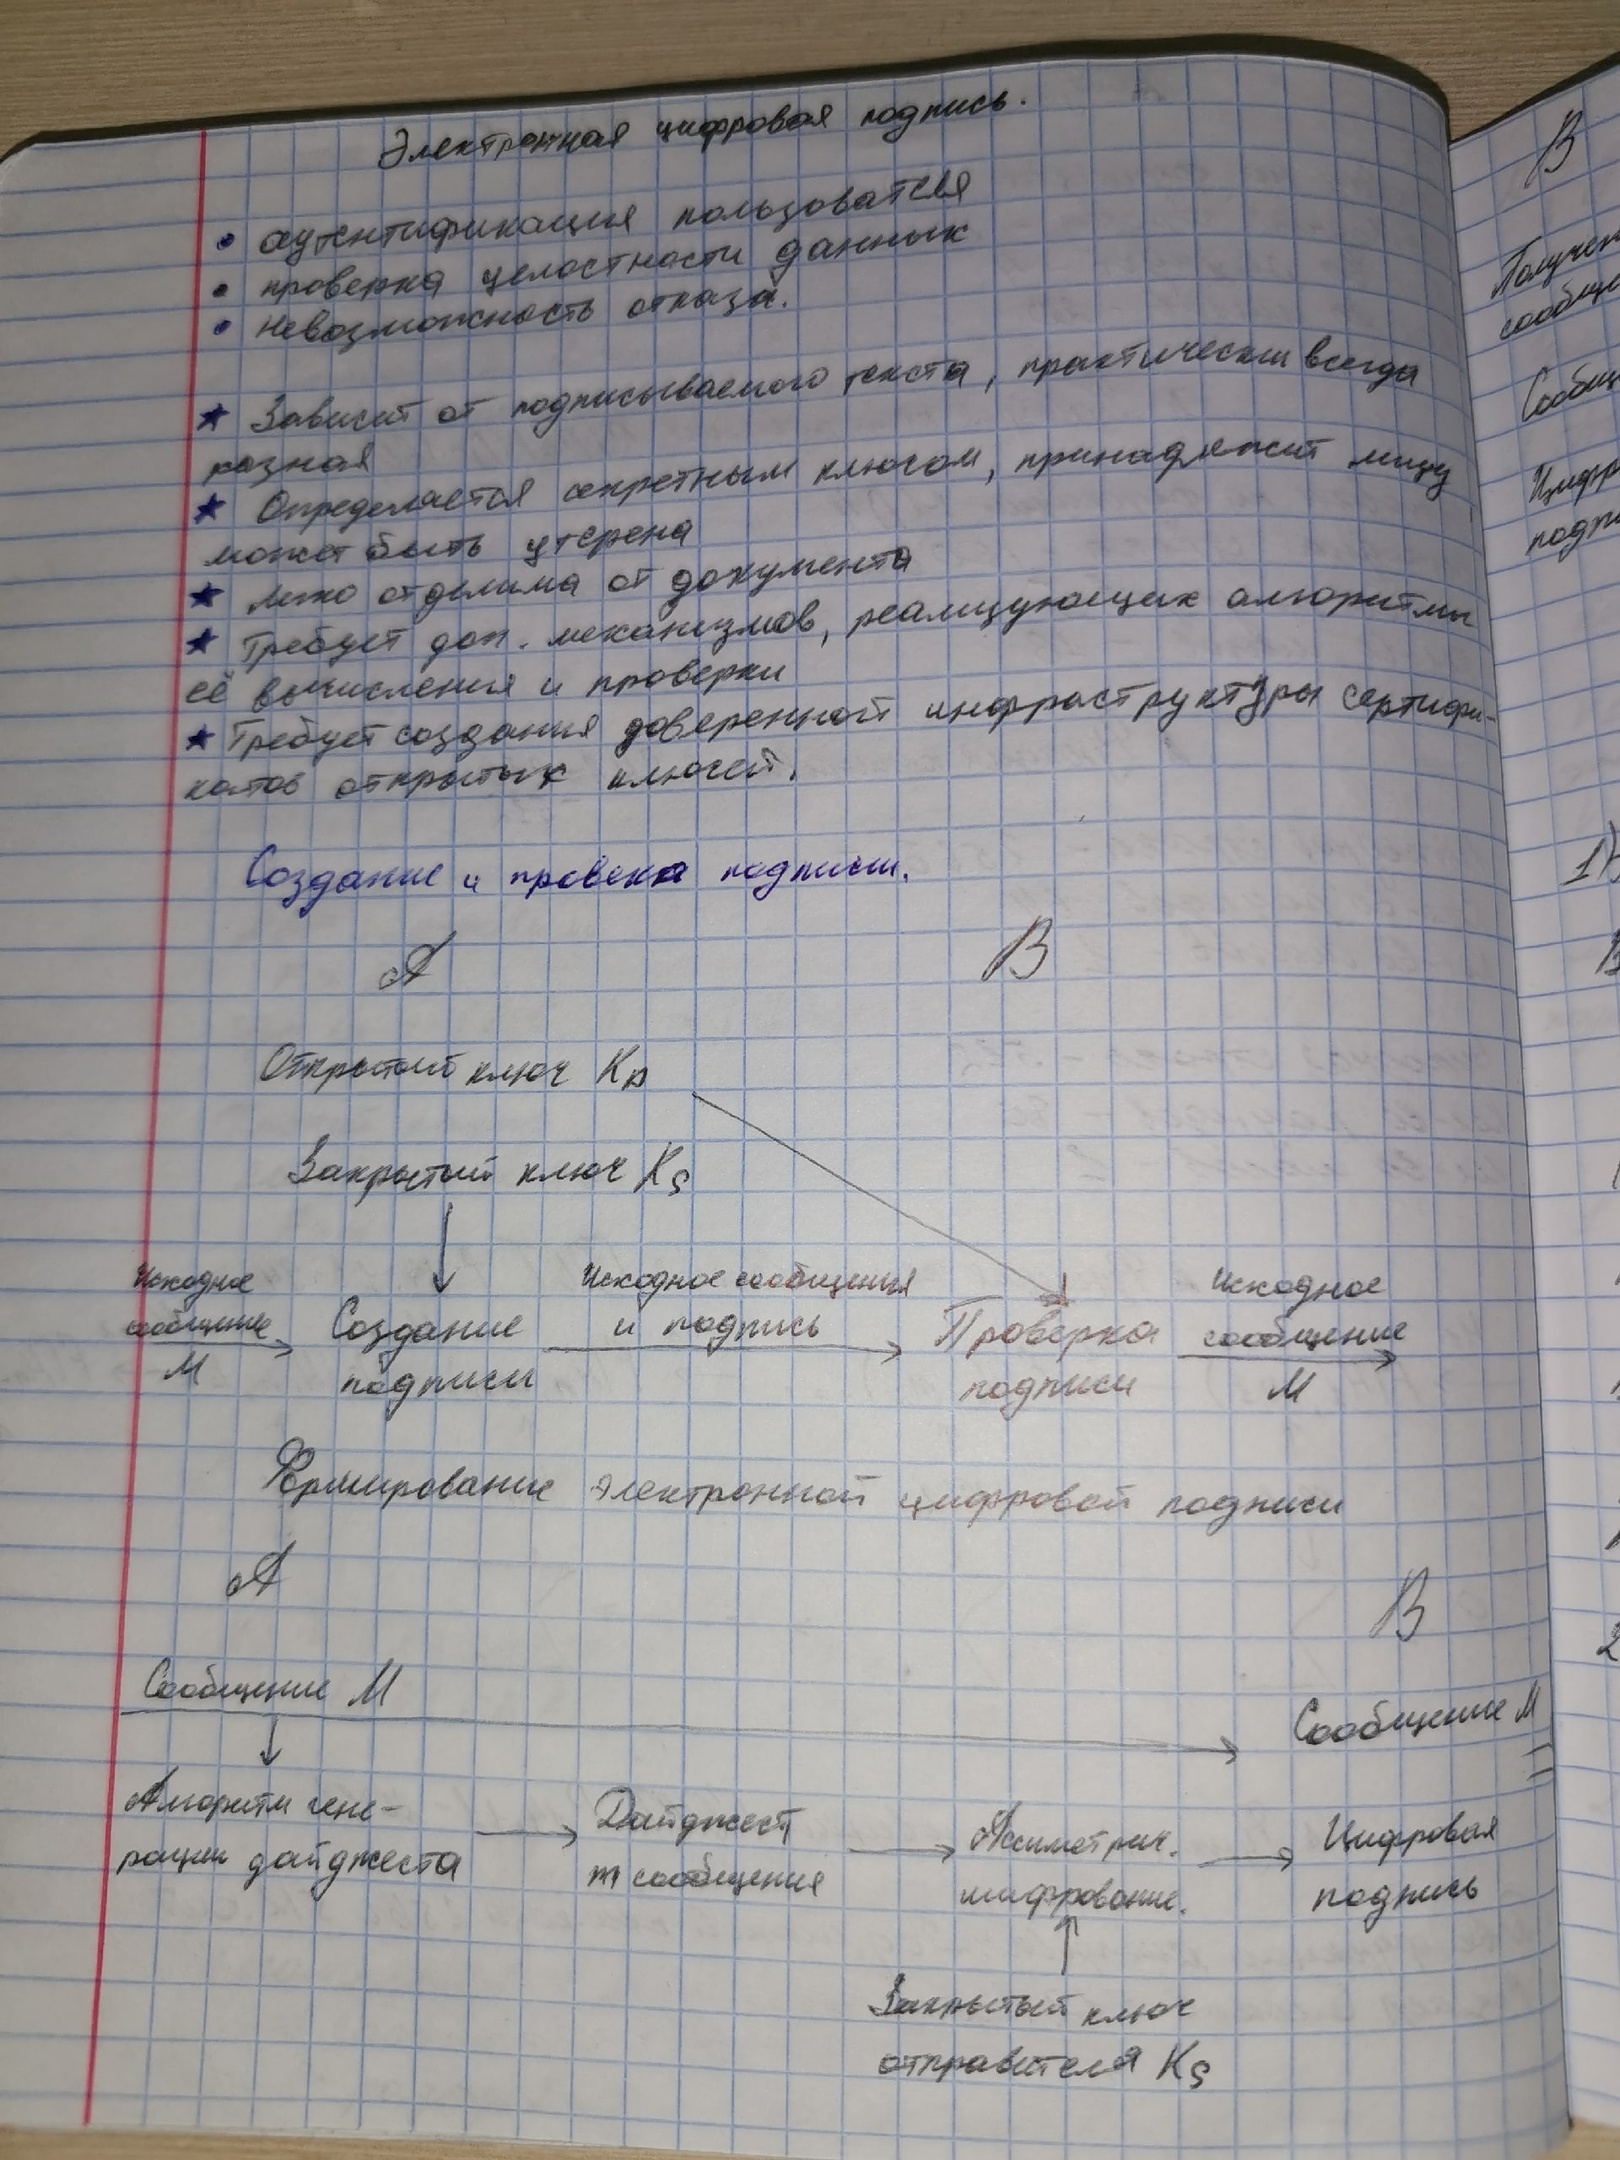 Электронная цифровая подпись.
• аутентификация пользователя
• проверка целостности данных
• невозможность отказа.
★ Зависит от подписываемого текста, практически всегда
разная
★ Определяется секретным ключом, принадлежит лицу
может быть утерена
★ легко отделима от документа
★ Требует доп. механизмов, реализующих алгоритмы
её вычисления и проверки
★ Требует создания доверенной инфраструктуры сертифи-
катов открытых ключей.
Создание и провека подписи.
A B
Открытый ключ Kp
Закрытый ключ Ks
Исходное сообщение M
Создание подписи
Исходное сообщения и подпись
Проверка подписи
Исходное сообщение M
Формирование электронной цифровой подписи
A B
Сообщение M Сообщение M
Алгоритм гене-
рации дайджеста
Дайджест
m сообщения
Ассиметрич.
шифрование.
Цифровая
подпись
Закрытый ключ
отправителя Ks
B
1)
2